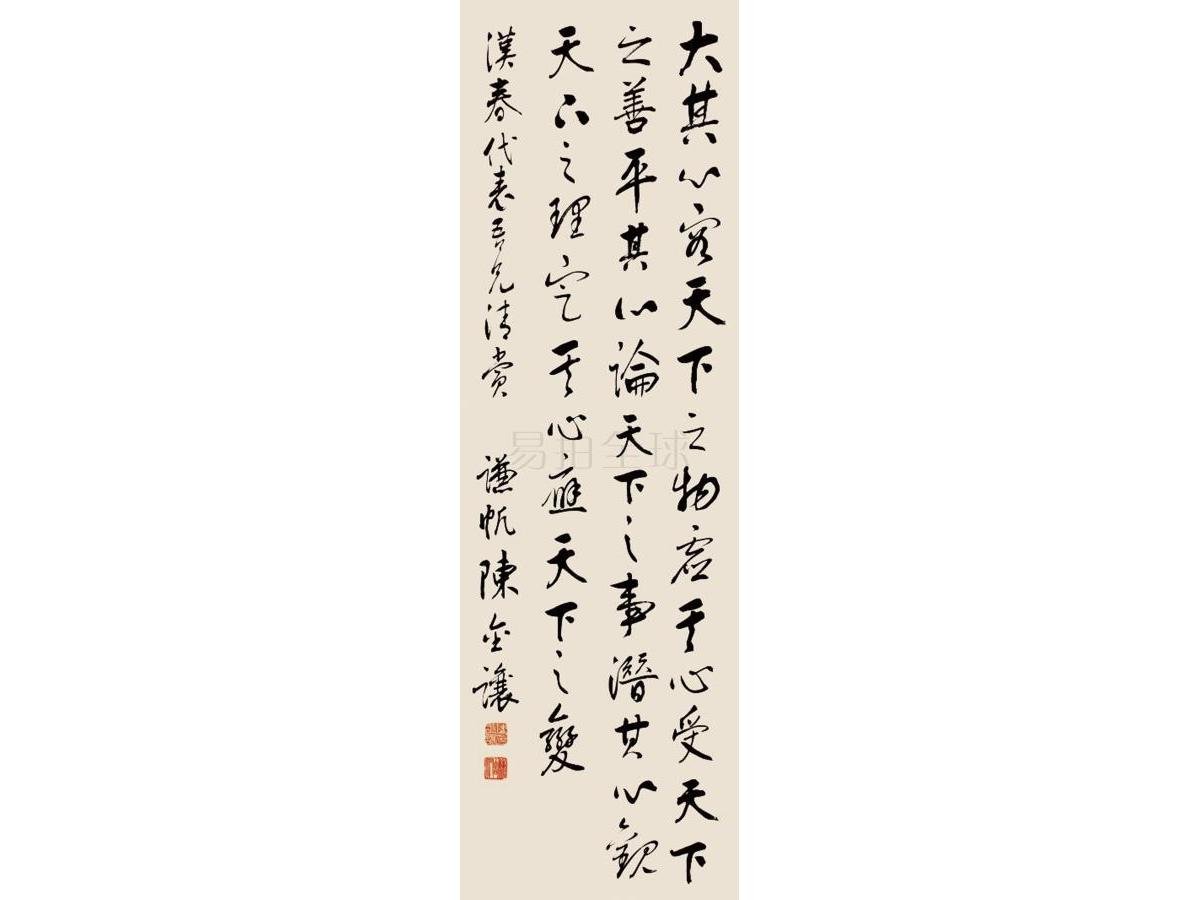 大其心容天下之物虛其心受天下
之善平其心論天下之事潛其心觀
天下之理定其心應天下之變
漢春代表吾兄清賞 謙帆陳金讓
易拍全球